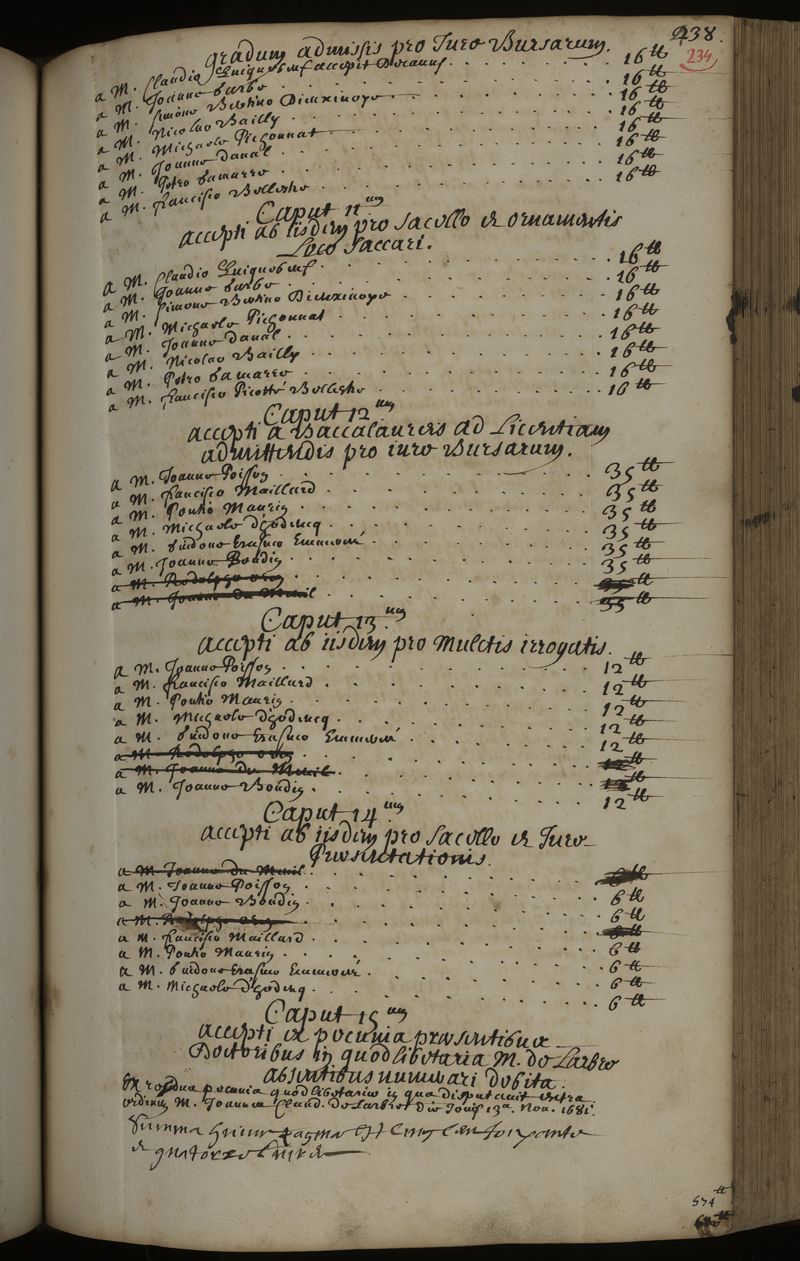 438.
234
gradum admissis pro Iure Bursarum.
a M. Claudio Quiquebeuf accepit Decanus. 16 ℔
a M. Joanne Barbo 16 ℔
a M. Simone Bertino Dieuxivoye 16 ℔
a M. Nicolao Bailly 16 ℔
a M. Michaele Picsonnat 16 ℔
a M. Joanne Daual 16 ℔
a M. Petro Lamarre 16 ℔
a M. Francisco Bellesho 16 ℔
Caput 11um
accepti ab iisdem pro sacello et ornamentis
Loco saccari.
a M. Claudio Quiquebeuf 16 ℔
a M. Joanne Barbo 16 ℔
a M. Simone Bertino Dieuxivoye 16 ℔
a M. Michaele Picsonnat 16 ℔
a M. Joanne Daual 16 ℔
a M. Nicolao Bailly 16 ℔
a M. Petro Lamarre 16 ℔
a M. Francisco Picoté Bellesho 16 ℔
Caput 12um
accepti a Baccalaureis ad Licentiam
admittendis pro iure Bursarum.
a M. Joanne Poisson 35 ℔
a M. Francisco Maillard 35 ℔
a M. Poncho Maurin 35 ℔
a M. Michaele D'godineq 35 ℔
a M. Guidone Erasmo Emmerez 35 ℔
a M. Joanne Boudin 35 ℔
a M. Rodolpho 35 ℔
a M. Joanne du Mesnil 35 ℔
Caput 13um
accepti ab iisdem pro Mulctis irrogatis.
a M. Joanne Poisson 12 ℔
a M. Francisco Maillard 12 ℔
a M. Poncho Maurin 12 ℔
a M. Michaele D'godineq 12 ℔
a M. Guidone Erasmo Emmerez 12 ℔
a M. Rodolpho 12 ℔
a M. Joanne du Mesnil 12 ℔
a M. Joanne Boudin 12 ℔
Caput 14um
accepti ab iisdem pro sacello et Iure
Praesentationis.
a M Joanne du Mesnil 6 ℔
a M. Joanne Poisson 6 ℔
a M. Joanne Boudin 6 ℔
a M. Rodolpho 6 ℔
a M. Francisco Maillard 6 ℔
a M. Poncho Maurin 6 ℔
a M. Guidone Erasmo Emmerez 6 ℔
a M. Michaele D'godineq 6 ℔
Caput 15um
accepti ex pecunia praesentibus
Doctoribus in quodlibetaria M. de Larbre
absentibus numerari debita.
Ex residua pecunia quodlibetariae in qua disputauit extra
ordinem M. Joannes Claud. de Larbre die Jouis 13a. Nou. 1681.
Summa huius paginae est cinq cen soixante
et quatorze liures
574 ℔